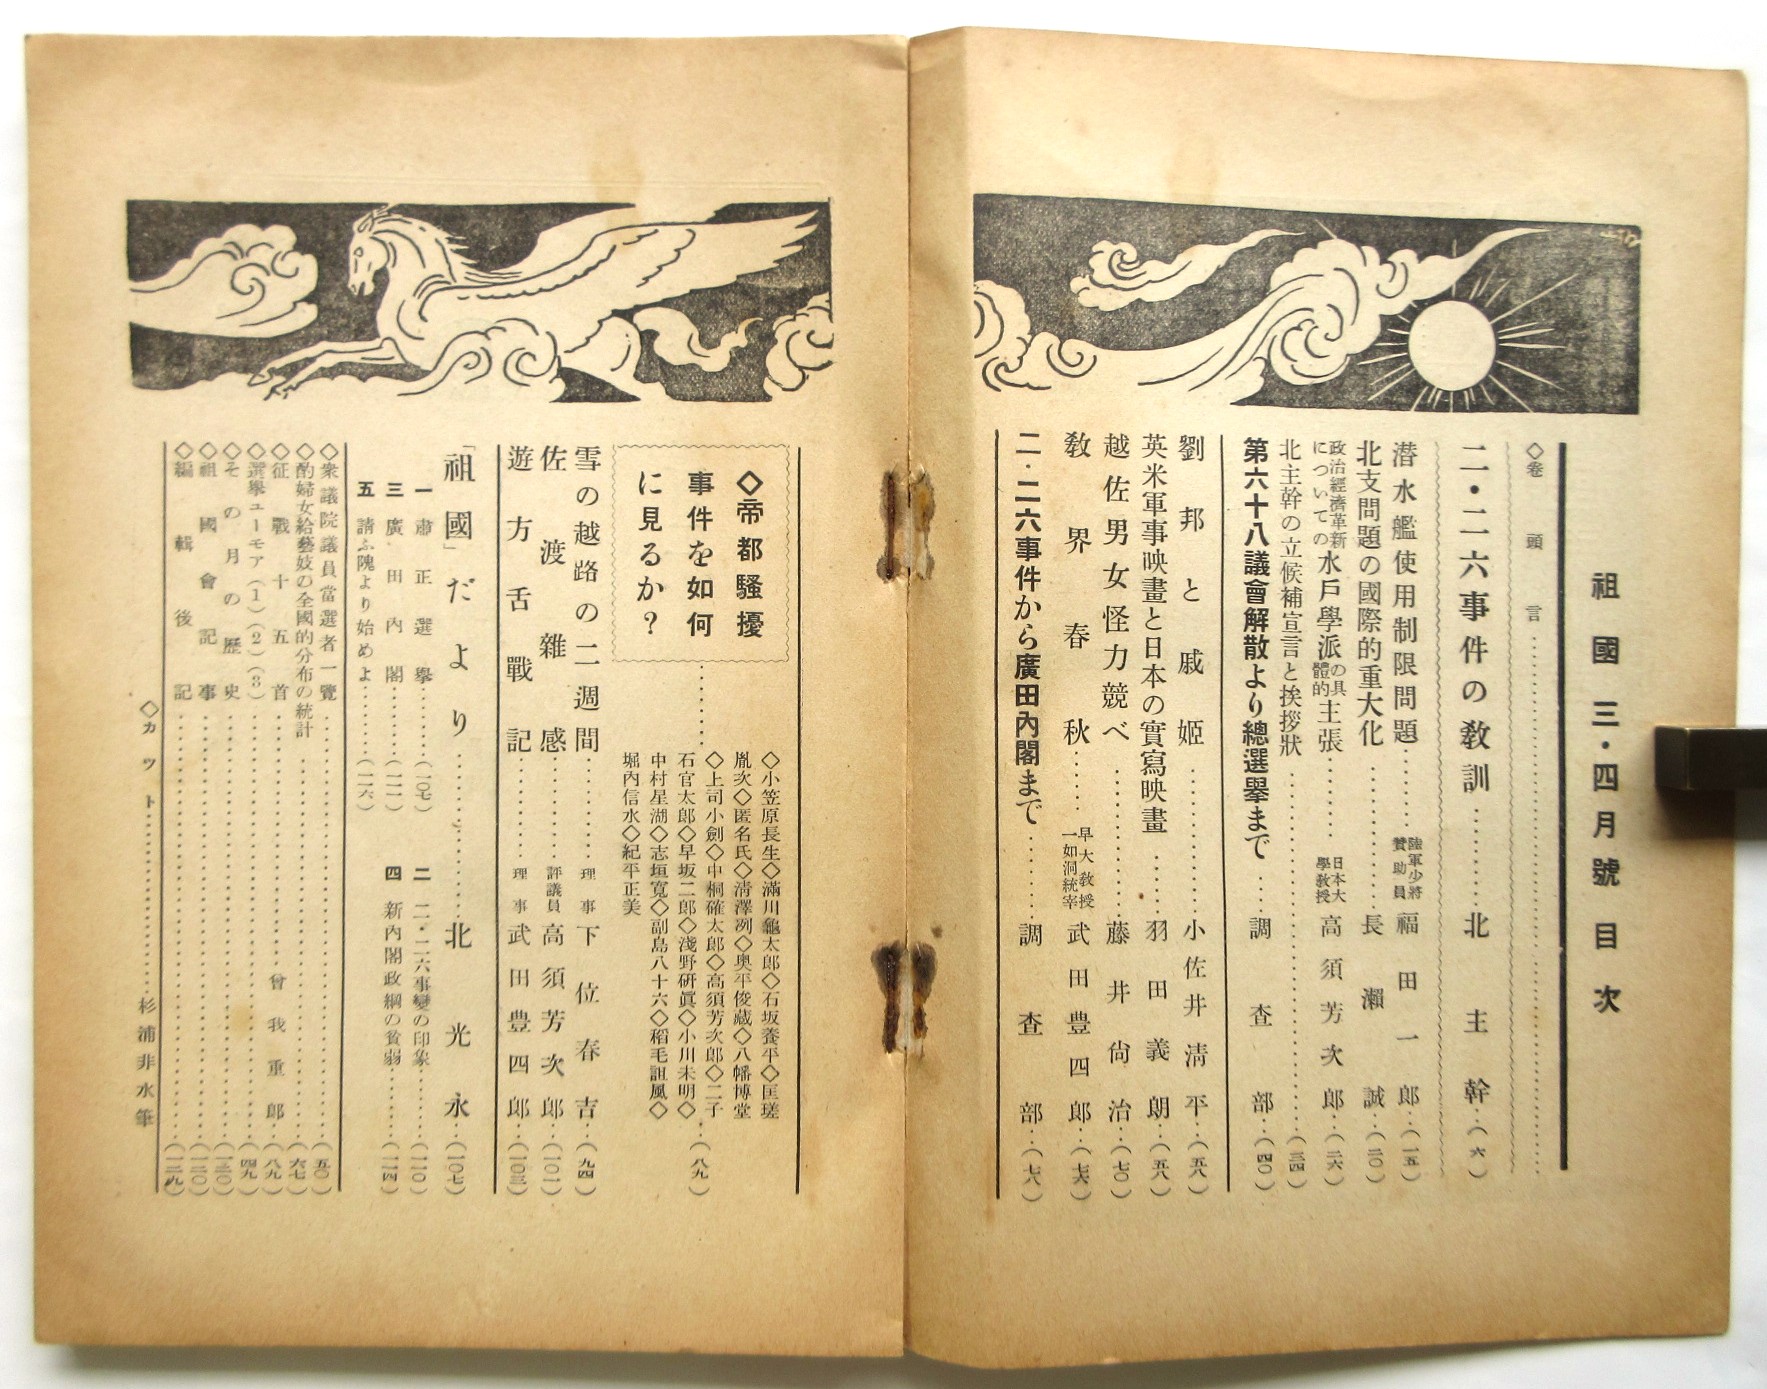 祖國 三・四月號 目次
◇卷頭言
二・二六事件の教訓……北主幹…(六)
潜水艦使用制限問題……陸軍少將 贊助員 福田一郎…(一五)
北支問題の國際的重大化……長瀨誠…(二〇)
政治經濟革新についての水戶學派の具體的主張……日本大學教授 高須芳次郎…(二六)
北主幹の立候補宣言と挨拶狀……(三四)
第六十八議會解散より總選擧まで……調査部…(四〇)
劉邦と戚姬……小佐井淸平…(五八)
英米軍事映畫と日本の實寫映畫……羽田義朗…(五八)
越佐男女怪力競べ……藤井尙治…(七〇)
教界春秋……早大教授 一如洞統宰 武田豊四郎…(七六)
二・二六事件から廣田內閣まで……調査部…(七八)
◇帝都騷擾
事件を如何
に見るか?……(八九)
◇小笠原長生◇滿川龜太郎◇石坂養平◇匡瑳
胤次◇匿名氏◇淸澤洌◇奥平俊藏◇八幡博堂
◇上司小劍◇中桐確太郎◇高須芳次郎◇二子
石官太郎◇早坂二郎◇淺野研眞◇小川未明◇
中村星湖◇志垣寬◇副島八十六◇稻毛詛風◇
堀內信水◇紀平正美
雪の越路の二週間……理事 下位春吉…(九四)
佐渡雜感……評議員 高須芳次郎…(一〇一)
遊方舌戰記……理事 武田豊四郎…(一〇三)
「祖國」だより……北光永…(一〇七)
一 肅正選擧……(一〇七)
二 二・二六事變の印象……(一一〇)
三 廣田內閣……(一一二)
四 新內閣政綱の貧弱……(一一四)
五 請ふ隗より始めよ……(一一六)
◇衆議院議員當選者一覽……(五〇)
◇酌婦女給藝妓の全國的分布の統計……(六七)
◇征戰十五首……曾我重郎…(八九)
◇選擧ユーモア(1)(2)(3)……(四九)
◇その月の歷史……(一三〇)
◇祖國會記事……(一二〇)
◇編輯後記……(一二九)
◇カット……杉浦非水筆